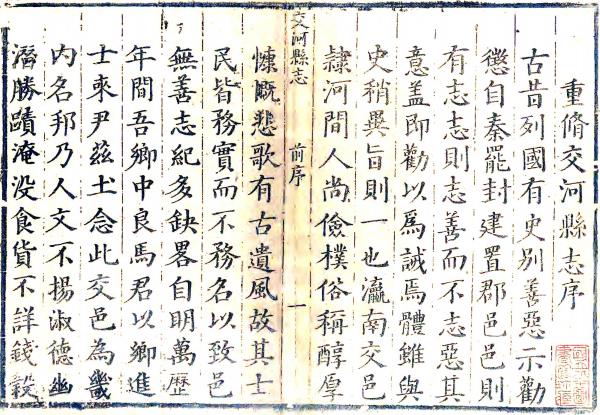 重脩交河縣志序
古昔列國有史別善惡示勸
懲自秦罷封建置郡邑邑則
有志志則志善而不志惡其
意盖即勸以爲誡焉體雖與
史稍異旨則一也瀛南交邑
隸河間人尚儉樸俗稱醇厚
交河縣志
前序
一
慷慨悲歌有古遺風故其士
民皆務實而不務名以致邑
無善志紀多缺畧自明萬歷
年間吾鄉中良馬君以鄉進
士來尹茲土念此交邑為畿
内名邦乃人文不揚淑德幽
潛勝蹟淹没食貨不詳錢穀